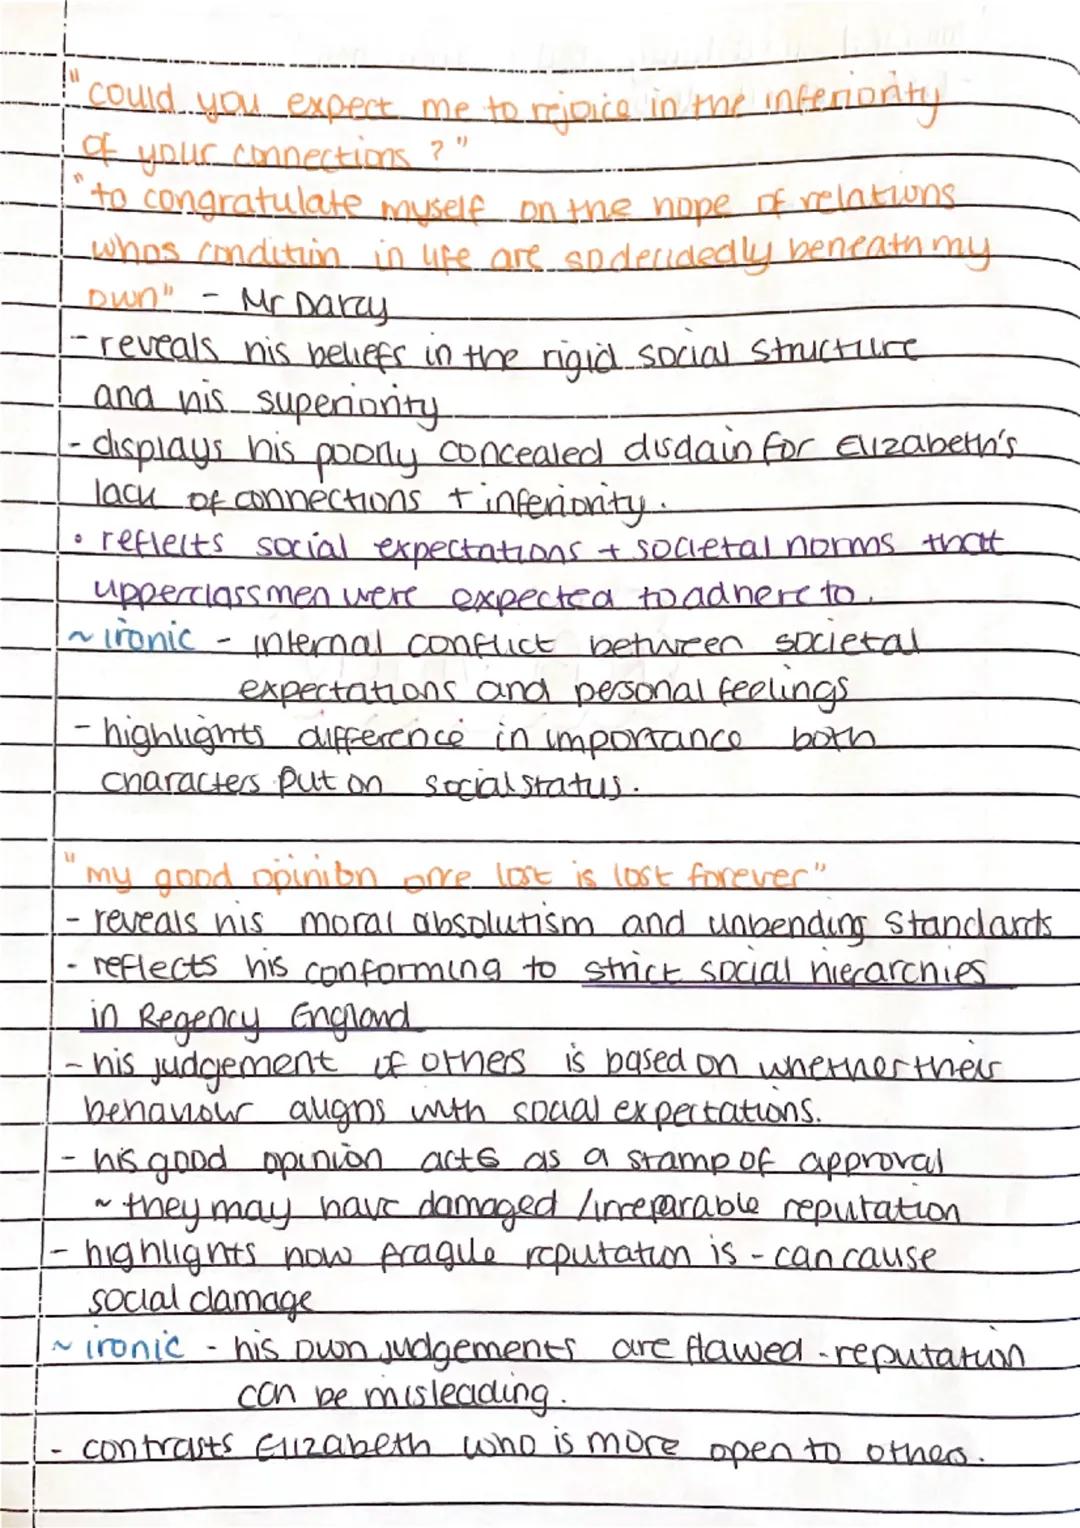 "could you expect me to rejoice in the inferiority
of your connections ?"
"to congratulate myself on the hope of relations
whos condition in life are so decidedly beneath my
own" - Mr Darcy
- reveals his beliefs in the rigid social structure
and his superiority
- displays his poorly concealed disdain for Elizabeth's
lack of connections + inferiority.
• reflects social expectations + societal norms that
upperclassmen were expected to adhere to.
~ ironic - internal conflict between societal
expectations and personal feelings
- highlights difference in importance both
characters put on social status.
"my good opinion once lost is lost forever"
- reveals his moral absolutism and unbending standards
- reflects his conforming to strict social hierarchies
in Regency England
- his judgement of others is based on whether their
behaviour aligns with social expectations.
- his good opinion acts as a stamp of approval
~ they may have damaged /irreparable reputation
- highlights how fragile reputation is - can cause
social damage
~ ironic - his own judgements are flawed - reputation
can be misleading.
- contrasts Elizabeth who is more open to others.